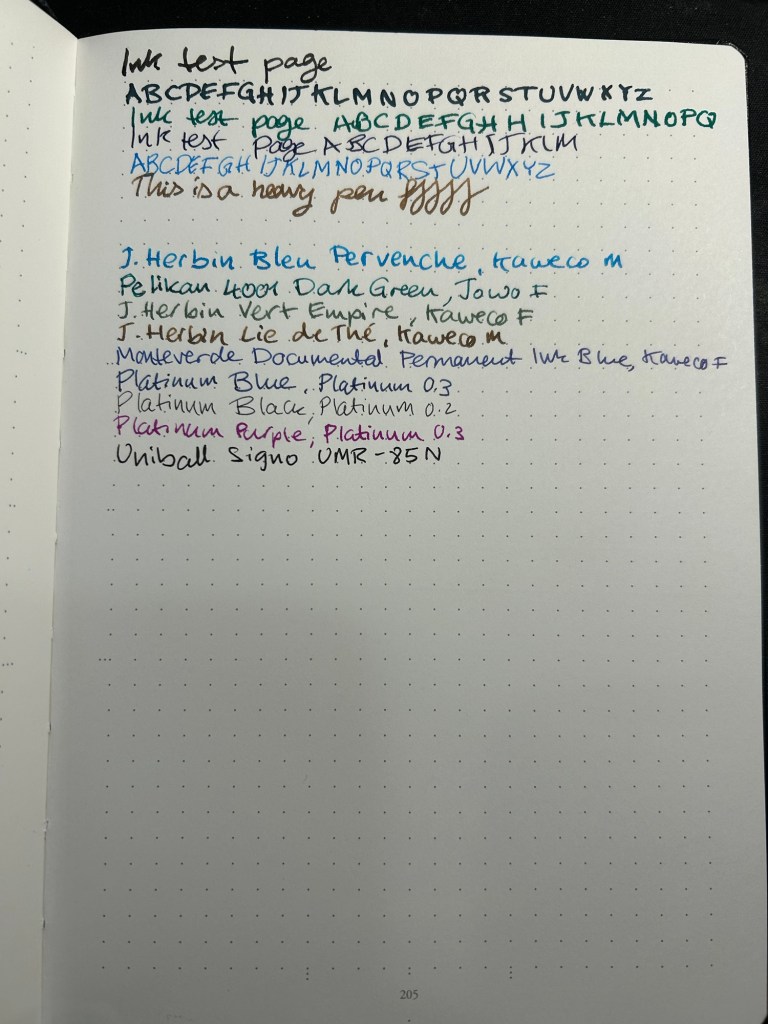 Ink test page
ABCDEFGHIJKLMNOPQRSTUVWXYZ
Ink test page ABCDEFGHHIJKLMNOPQ
Ink test page ABCDEFGHIJKLM
ABCDEFGHIJKLMNOPQRSTUVWXYZ
This is a heavy pen
J. Herbin Bleu Pervenche, Kaweco M
Pelikan 4001 Dark Green, Jowo F
J. Herbin Vert Empire, Kaweco F
J. Herbin Lie de Thé, Kaweco M
Monteverde Documental Permanent Ink Blue, Kaweco F
Platinum Blue, Platinum 0.3
Platinum Black, Platinum 0.2
Platinum Purple, Platinum 0.3
Uniball Signo UMR-85N
205